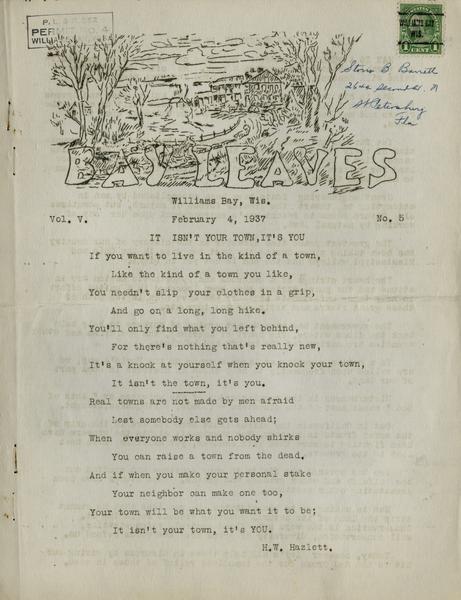 P. L. & R.
PERMIT NO. 4
WILLIAMS BAY
WIS.
1 CENT 1
Storrs B Barrett
St Petersburg
Fla
BAY LEAVES
Williams Bay, Wis.
Vol. V. February 4, 1937 No. 5
IT ISN'T YOUR TOWN,IT'S YOU
If you want to live in the kind of a town,
Like the kind of a town you like,
You needn't slip your clothes in a grip,
And go on a long, long hike.
You'll only find what you left behind,
For there's nothing that's really new,
It's a knock at yourself when you knock your town,
It isn't the town, it's you.
Real towns are not made by men afraid
Lest somebody else gets ahead;
When everyone works and nobody shirks
You can raise a town from the dead.
And if when you make your personal stake
Your neighbor can make one too,
Your town will be what you want it to be;
It isn't your town, it's YOU.
H.W. Hazlett.